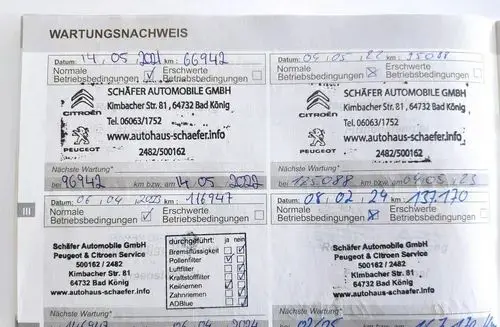 WARTUNGSNACHWEIS
Datum: 14.05.2021 km: 66942
Normale Betriebsbedingungen
Erschwerte Betriebsbedingungen
SCHÄFER AUTOMOBILE GMBH
Kimbacher Str. 81, 64732 Bad König
CITROËN
Tel. 06063/1752
www.autohaus-schaefer.info
PEUGEOT
2482/500162
Nächste Wartung*
bei 96942 km bzw. am 14.05.2022
Datum: 04.05.22 km: 95088
Normale Betriebsbedingungen
Erschwerte Betriebsbedingungen
SCHÄFER AUTOMOBILE GMBH
Kimbacher Str. 81, 64732 Bad König
CITROËN
Tel. 06063/1752
www.autohaus-schaefer.info
PEUGEOT
2482/500162
Nächste Wartung*
bei 125088 km bzw. am 04.05.23
III
Datum: 06.04.2023 km: 116947
Normale Betriebsbedingungen
Erschwerte Betriebsbedingungen
Schäfer Automobile GmbH
Peugeot & Citroen Service
500162 / 2482
Kimbacher Str. 81
64732 Bad König
www.autohaus-schaefer.info
durchgeführt: ja nein
Bremsflüssigkeit
Pollenfilter
Luftfilter
Kraftstofffilter
Keilriemen
Zahnriemen
ADBlue
Nächste Wartung*
146947 06.04.2024
Datum: 08.02.24 km: 137170
Normale Betriebsbedingungen
Erschwerte Betriebsbedingungen
Schäfer Automobile GmbH
Peugeot & Citroen Service
500162 / 2482
Kimbacher Str. 81
64732 Bad König
www.autohaus-schaefer.info
Nächste Wartung*